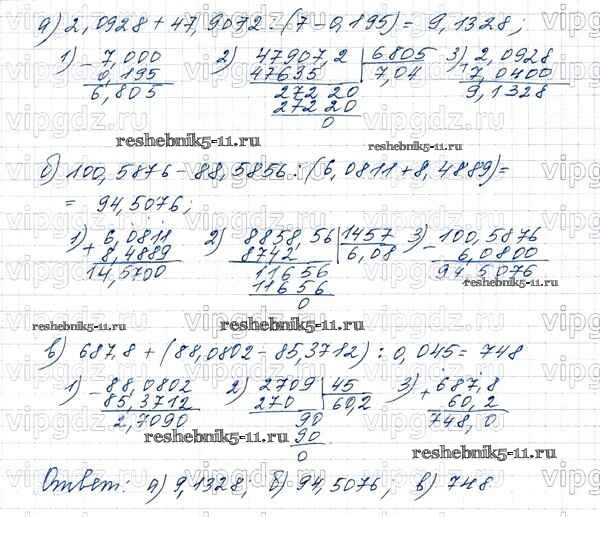 а) 2,0928 + 47,9072 : (7 - 0,195) = 9,1328;
1) - 7,000 2) 47907,2 | 6805 3) + 2,0928
0,195 47635 7,04 7,0400
6,805 272 20 9,1328
272 20
0
reshebnik5-11.ru
б) 100,5876 - 88,5856 : (6,0811 + 8,4889) =
= 94,5076;
1) + 6,0811 2) 8858,56 | 1457 3) - 100,5876
8,4889 8742 6,08 6,0800
14,5700 116 56 94,5076
116 56
0
reshebnik5-11.ru
reshebnik5-11.ru
reshebnik5-11.ru
в) 687,8 + (88,0802 - 85,3712) : 0,045 = 748
1) - 88,0802 2) 2709 | 45 3) + 687,8
85,3712 270 60,2 60,2
2,7090 90 748,0
90
0
reshebnik5-11.ru
Ответ: а) 9,1328; б) 94,5076; в) 748
vipgdz.ru